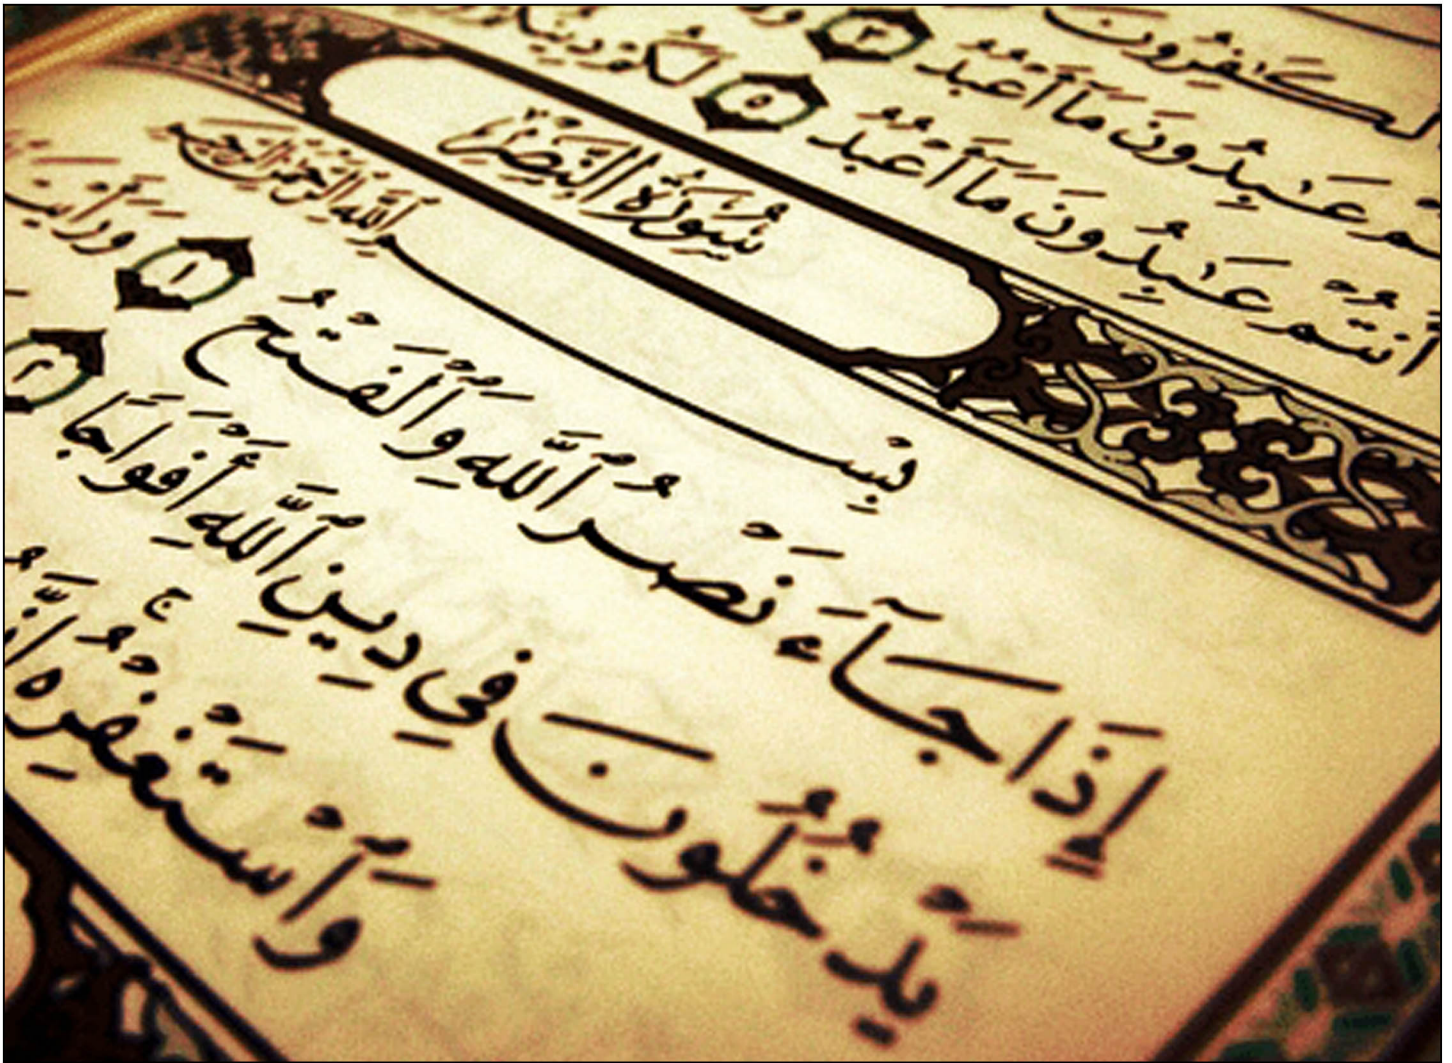 ٱلْكَٰفِرُونَ
عَٰبِدُونَ مَآ أَعْبُدُ ٣
أَنتُمْ عَٰبِدُونَ مَآ أَعْبُدُ ٥ لَكُمْ دِينُكُمْ
سُورَةُ النَّصْرِ
بِسْمِ ٱللَّهِ ٱلرَّحْمَٰنِ ٱلرَّحِيمِ
إِذَا جَآءَ نَصْرُ ٱللَّهِ وَٱلْفَتْحُ ١ وَرَأَيْتَ
يَدْخُلُونَ فِي دِينِ ٱللَّهِ أَفْوَاجًا ٢
وَٱسْتَغْفِرْهُ ۚ